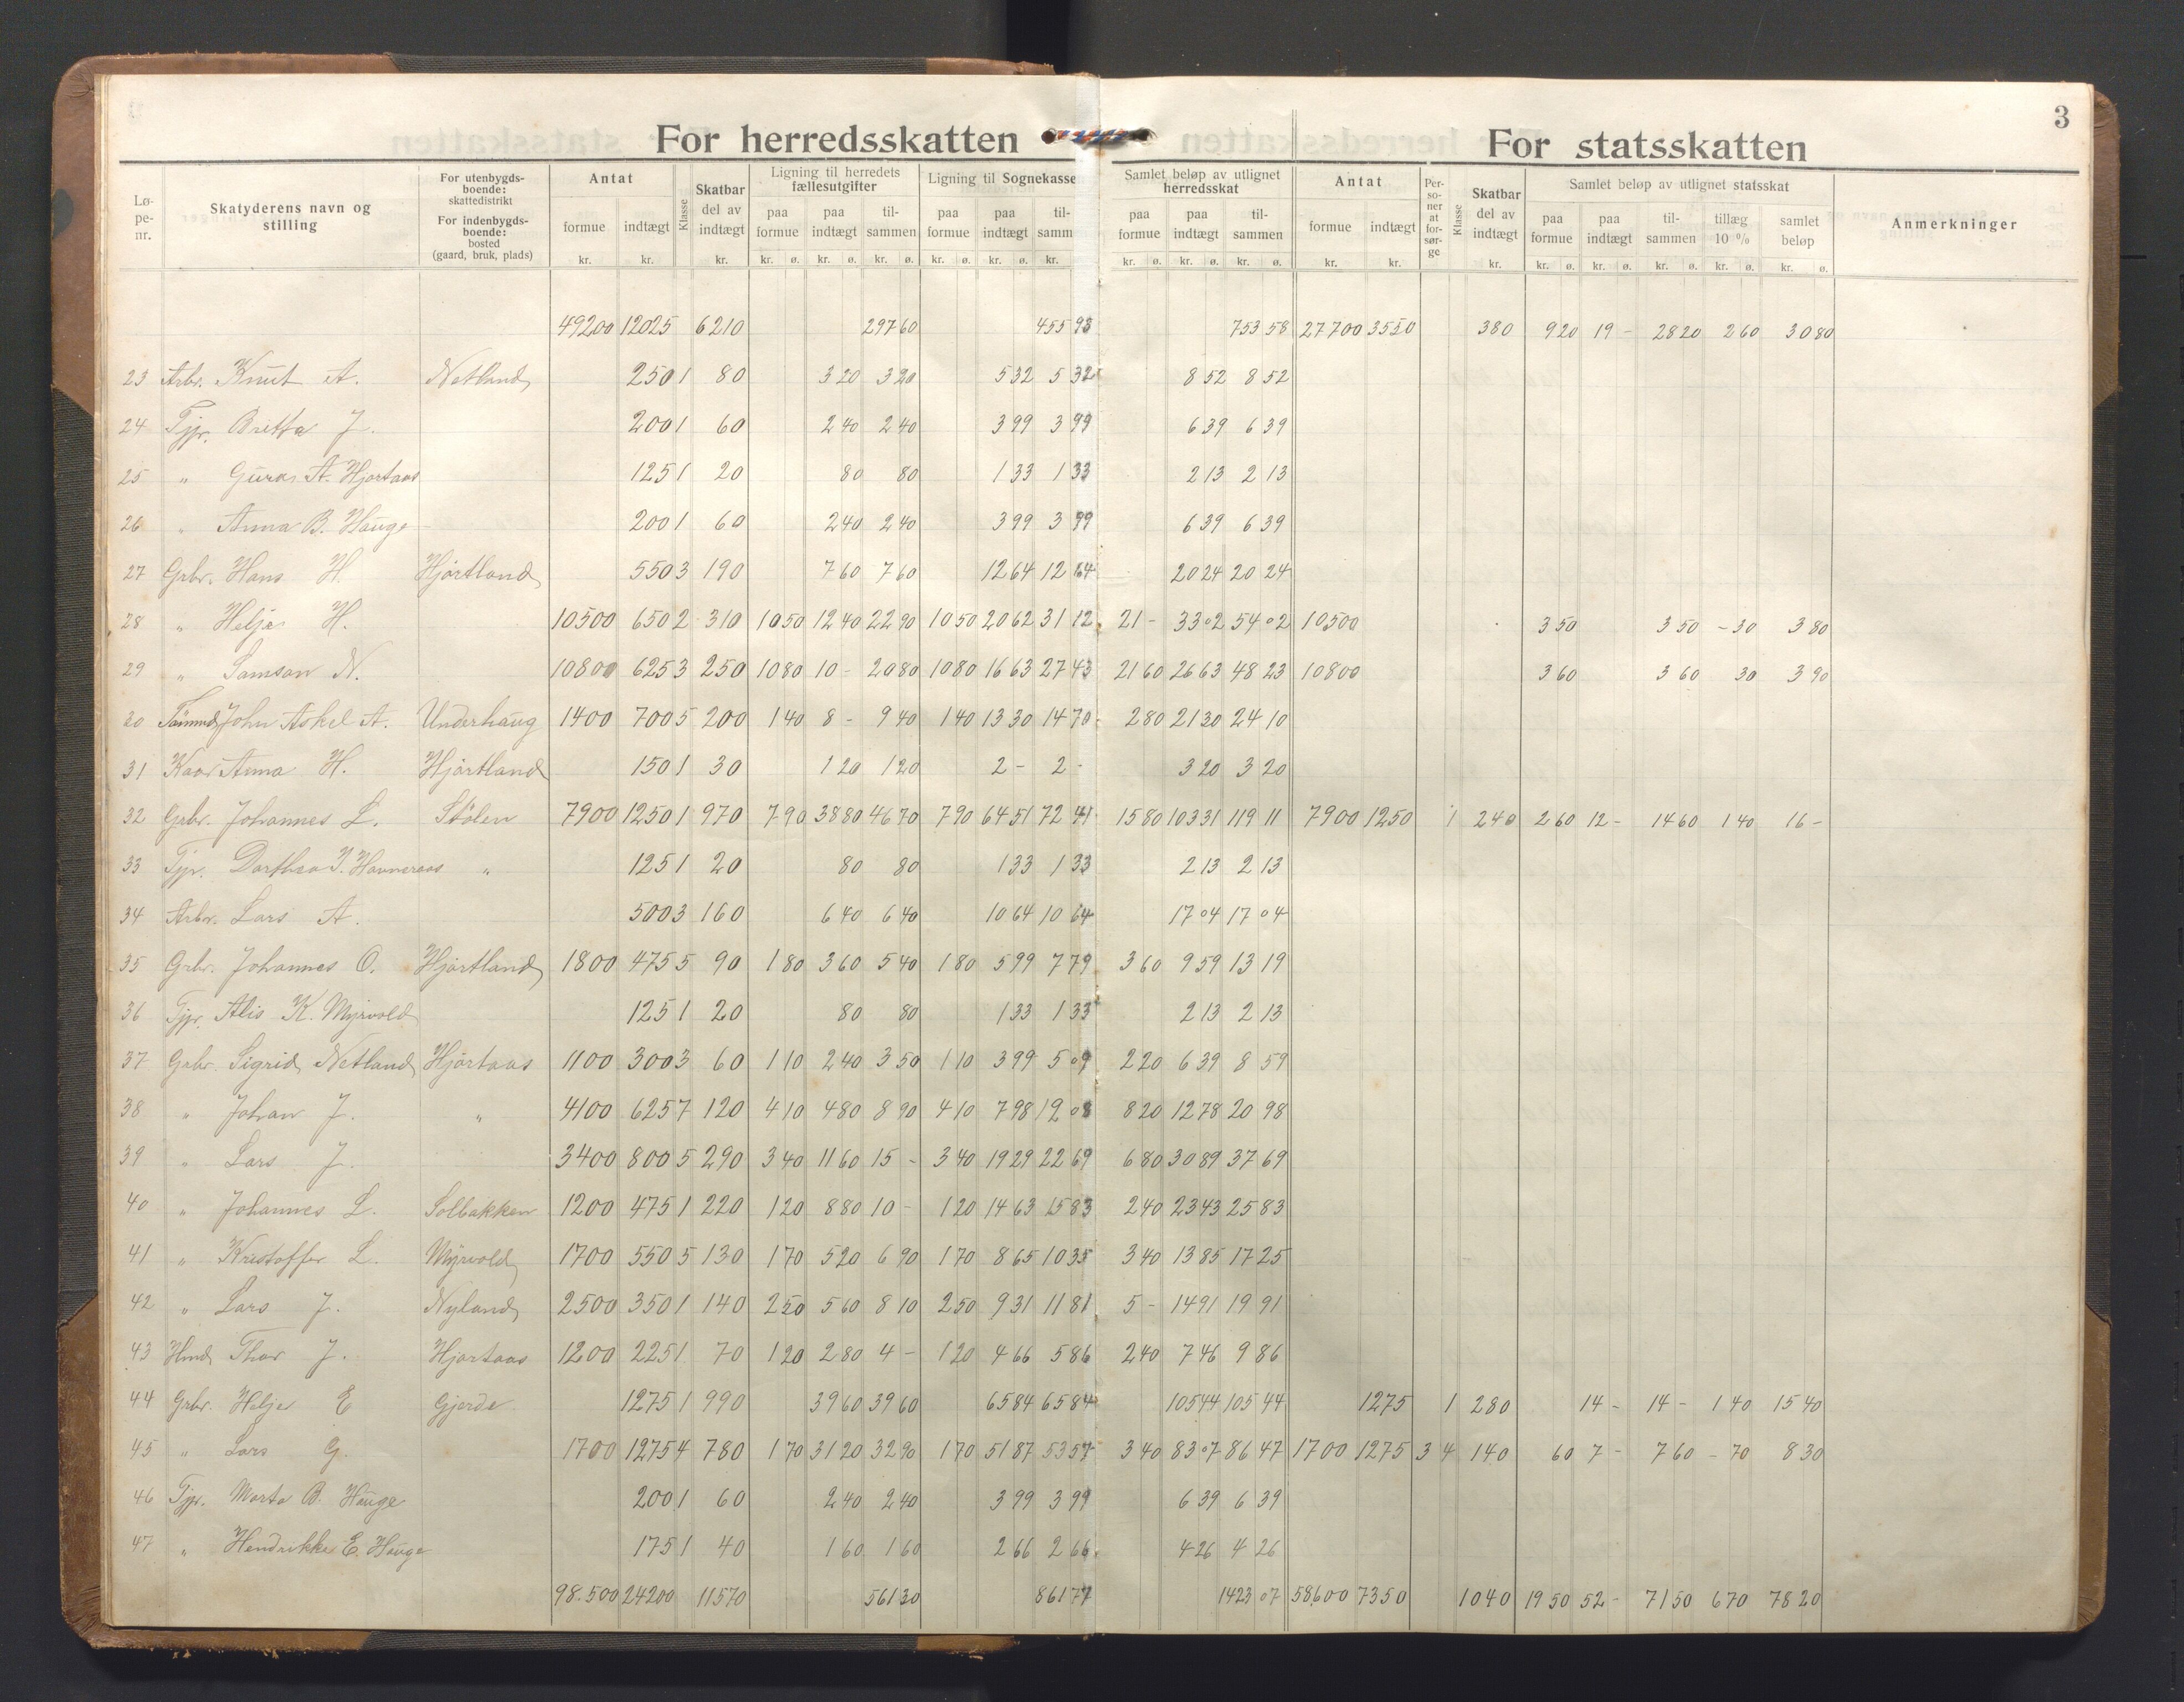 3
For herredsskatten For statsskatten
Lø-pe-nr. | Skatyderens navn og stilling | For utenbygds-boende: skattedistrikt For indenbygds-boende: bosted (gaard, bruk, plads) | Antat formue kr. | indtægt kr. | Klasse | Skatbar del av indtægt kr. | Ligning til herredets fællesutgifter paa formue kr. ø. | paa indtægt kr. ø. | til-sammen kr. ø. | Ligning til Sognekasse paa formue kr. ø. | paa indtægt kr. ø. | til-samm kr. | Samlet beløp av utlignet herredsskat paa formue kr. ø. | paa indtægt kr. ø. | til-sammen kr. ø. | Antat formue kr. | indtægt kr. | Per-so-ner at for-sør-ge | Klasse | Skatbar del av indtægt kr. | Samlet beløp av utlignet statsskat paa formue kr. ø. | paa indtægt kr. ø. | til-sammen kr. ø. | tillæg 10 % kr. ø. | samlet beløp kr. ø. | Anmerkninger
49200 12025 6210 297 60 455 98 753 58 27700 3550 380 9 20 19 - 28 20 2 60 30 80
23 Arbr. Knut A. Netland 250 1 80 3 20 3 20 5 32 5 32 8 52 8 52
24 Tjpr. Britta J. 200 1 60 2 40 2 40 3 99 3 99 6 39 6 39
25 " Gura A. Hjortaas 125 1 20 80 80 1 33 1 33 2 13 2 13
26 " Anna B. Hauge 200 1 60 2 40 2 40 3 99 3 99 6 39 6 39
27 Grbr. Hans H. Hjørtland 550 3 190 7 60 7 60 12 64 12 64 20 24 20 24
28 " Helje H. 10500 650 2 310 10 50 12 40 22 90 10 50 20 62 31 12 21 - 33 02 54 02 10500 3 50 3 50 - 30 3 80
29 " Samson N. 10800 625 3 250 10 80 10 - 20 80 10 80 16 63 27 43 21 60 26 63 48 23 10800 3 60 3 60 30 3 90
30 John Askel A. Underhaug 1400 700 5 200 1 40 8 - 9 40 1 40 13 30 14 70 2 80 21 30 24 10
31 Anna H. Hjørtland 150 1 30 1 20 1 20 2 - 2 - 3 20 3 20
32 Grbr. Johannes L. Stølen 7900 1250 1 970 7 90 38 80 46 70 7 90 64 51 72 41 15 80 103 31 119 11 7900 1250 1 240 2 60 12 - 14 60 1 40 16 -
33 Tjpr. Dorthea " 125 1 20 80 80 1 33 1 33 2 13 2 13
34 Arbr. Lars A. 500 3 160 6 40 6 40 10 64 10 64 17 04 17 04
35 Grbr. Johannes O. Hjørtland 1800 475 5 90 1 80 3 60 5 40 1 80 5 99 7 79 3 60 9 59 13 19
36 Tjpr. Alis K. Myrvold 125 1 20 80 80 1 33 1 33 2 13 2 13
37 Grbr. Sigrid Netland Hjørtaas 1100 300 3 60 1 10 2 40 3 50 1 10 3 99 5 09 2 20 6 39 8 59
38 " Johan J. " 4100 625 7 120 4 10 4 80 8 90 4 10 7 98 12 08 8 20 12 78 20 98
39 " Lars J. 3400 800 5 290 3 40 11 60 15 - 3 40 19 29 22 69 6 80 30 89 37 69
40 " Johannes L. Solbakken 1200 475 1 220 1 20 8 80 10 - 1 20 14 63 15 83 2 40 23 43 25 83
41 " Kristoffer L. Myrvold 1700 550 5 130 1 70 5 20 6 90 1 70 8 65 10 35 3 40 13 85 17 25
42 " Lars J. Nyland 2500 350 1 140 2 50 5 60 8 10 2 50 9 31 11 81 5 - 14 91 19 91
43 Hmd. Thor J. Hjortaas 1200 225 1 70 1 20 2 80 4 - 1 20 4 66 5 86 2 40 7 46 9 86
44 Grbr. Helje E Gjerde 1275 1 990 39 60 39 60 65 84 65 84 105 44 105 44 1275 1 280 14 - 14 - 1 40 15 40
45 " Lars G. 1700 1275 4 780 1 70 31 20 32 90 1 70 51 87 53 57 3 40 83 07 86 47 1700 1275 3 4 140 60 7 - 7 60 - 70 8 30
46 Tjpr. Marta B. Hauge 200 1 60 2 40 2 40 3 99 3 99 6 39 6 39
47 " Hendrikke E. Hauge 175 1 40 1 60 1 60 2 66 2 66 4 26 4 26
98.500 24200 11570 561 30 861 77 1423 07 58600 7350 1040 19 50 52 - 71 50 6 70 78 20